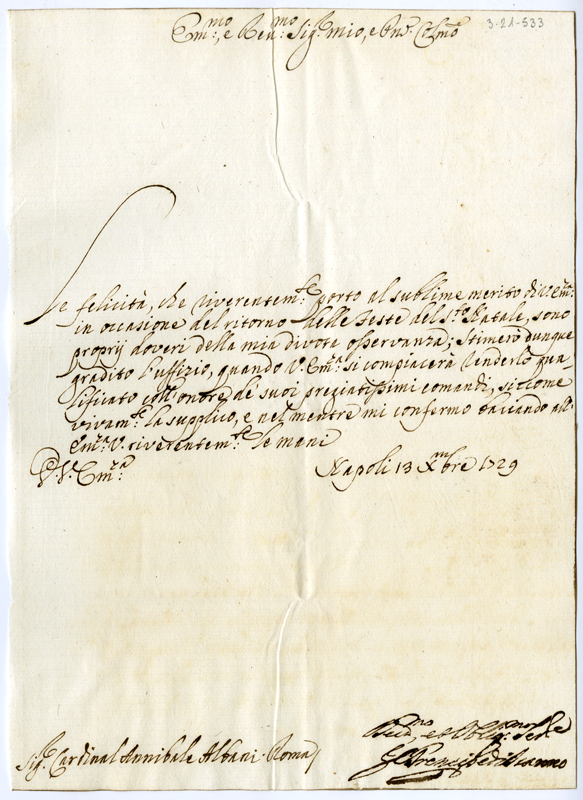 3-21-533
Em:mo, e Reu:mo Sig:r mio, e Pne Col:mo
Le felicità, che riverentem:te porto al sublime merito di V. Em:za
in occasione del ritorno delle feste del S:to Natale, sono
proprij doveri della mia divota osservanza; Stimerò dunque
gradito l'uffizio, quando V. Em:za si compiacerà renderlo qua-
lificato coll'onore de suoi preziatissimi comandi, si come
vivam:te la supplico, e nel mentre mi confermo baciando all'
Em:za V. riverentem:te le mani
D. V. Em:za
Napoli 13 Xmbre 1729
Sig:r Cardinal Annibale Albani Roma
Diu:mo, et Obblig:mo Ser:e
Il Prencipe di